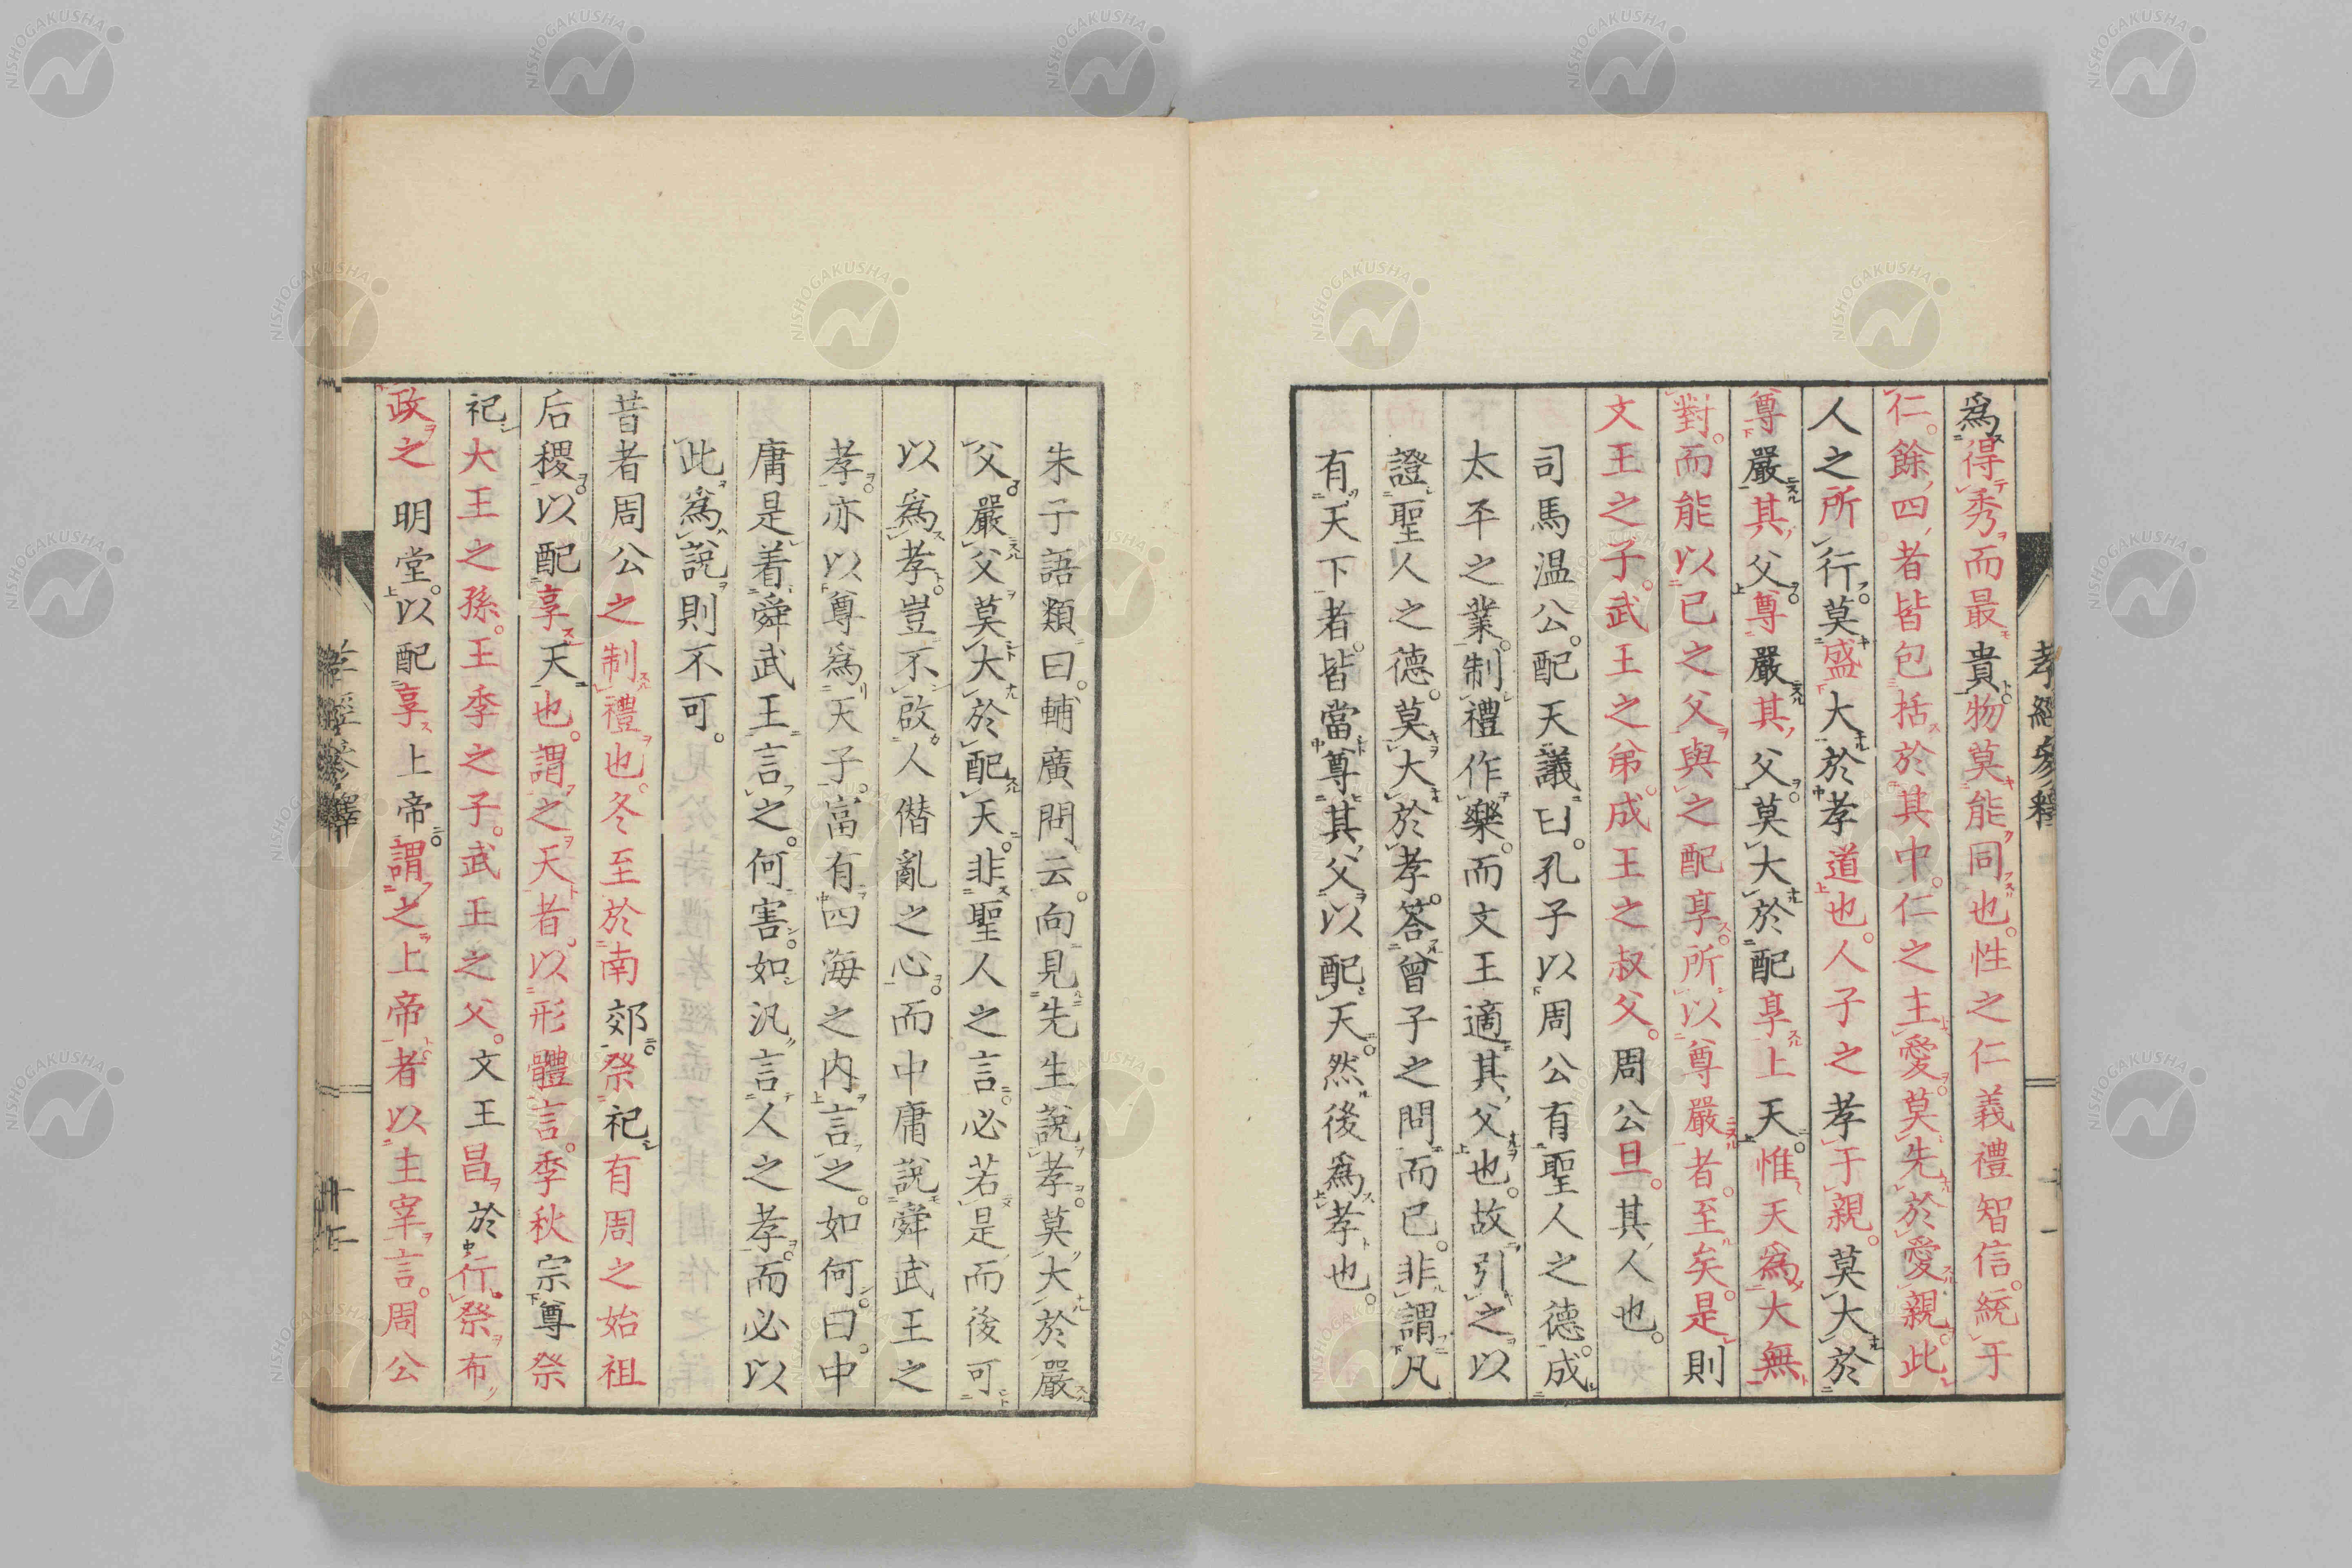 爲得秀而最貴物莫能同也。性之仁義禮智信。統于
仁。餘四者皆包括於其中。仁之主愛莫先於愛親此
人之所行。莫盛大於孝道也。人子之孝于親。莫大於
尊嚴其父。尊嚴其父。莫大於配享上天。惟天爲大無
對。而能以已之父與之配享。所以尊嚴者。至矣。是則
文王之子。武王之弟。成王之叔父。周公旦。其人也。
司馬温公。配天議曰。孔子以周公有聖人之德。成
太平之業。制禮作樂。而文王適其父也。故引之以
證聖人之德。莫大於孝。答曾子之問而已。非謂凡
有天下者。皆當尊其父以配天。然後爲孝也。
孝經參釋
朱子語類曰。輔廣問云。向見先生説孝莫大於嚴
父。嚴父莫大於配天。非聖人之言。必若是而後可
以爲孝。豈不啟人僭亂之心。而中庸説舜武王之
孝。亦以尊爲天子。富有四海之内言之。如何。曰。中
庸是着舜武王言之。何害。如汎言人之孝。而必以
此爲説則不可。
昔者周公之制禮也。冬至於南郊。祭祀有周之始祖
后稷。以配享天也。謂之天者。以形體言。季秋宗尊祭
祀大王之孫。王季之子。武王之父。文王昌於行祭布
政之 明堂。以配享上帝。謂之上帝者以主宰言。周公
孝經參釋
NISHOGAKUSHA